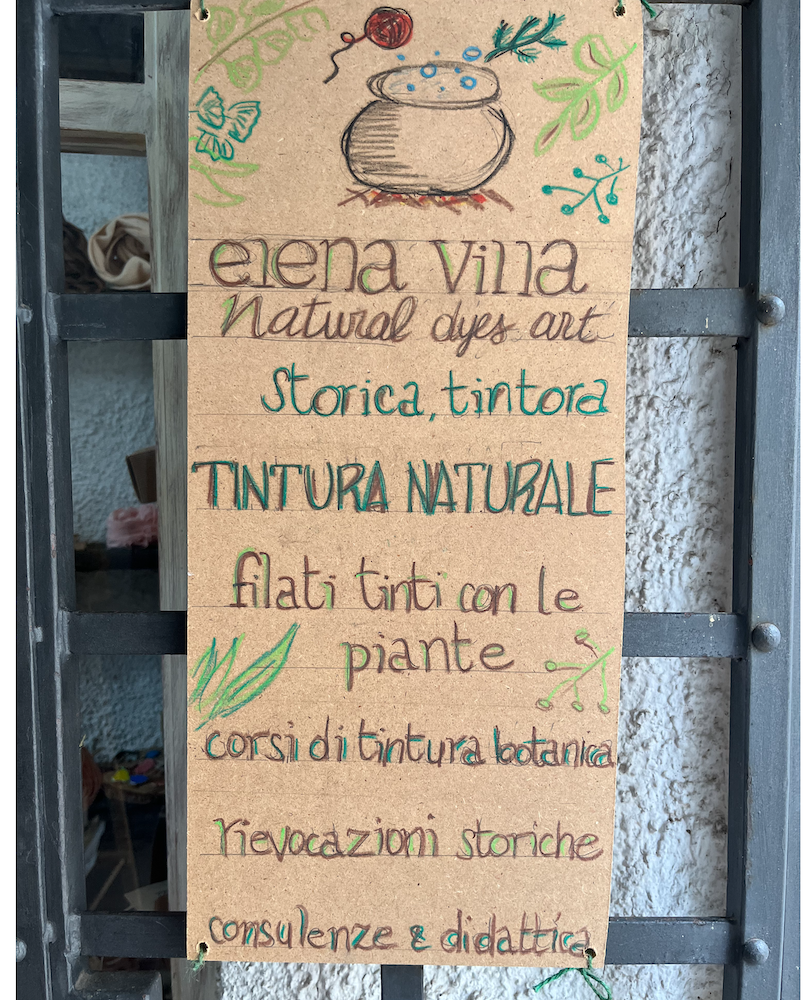 elena Villa
Natural dyes art
Storica, tintora
TINTURA NATURALE
filati tinti con le
piante
corsi di tintura botanica
rievocazioni storiche
consulenze & didattica